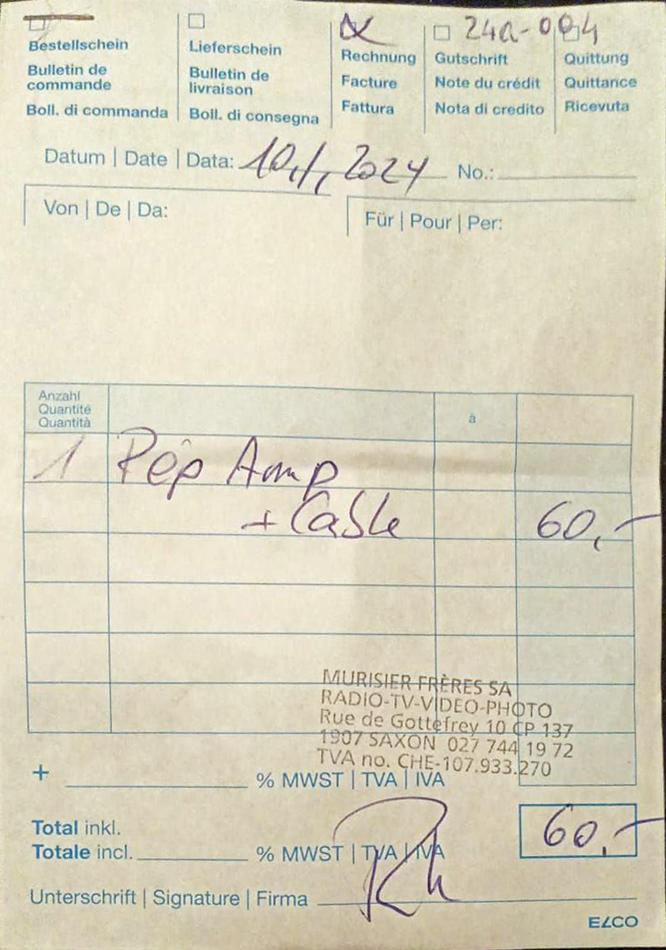 24a-004
Bestellschein Lieferschein Rechnung Gutschrift Quittung
Bulletin de commande Bulletin de livraison Facture Note du crédit Quittance
Boll. di commanda Boll. di consegna Fattura Nota di credito Ricevuta
Datum | Date | Data: 10,1, 2024 No.:
Von | De | Da: Für | Pour | Per:
Anzahl
Quantité à
Quantità
1 Rép Amp
+ Cable 60,-
MURISIER FRÈRES SA
RADIO-TV-VIDEO-PHOTO
Rue de Gottefrey 10 CP 137
1907 SAXON 027 744 19 72
TVA no. CHE-107.933.270
+ % MWST | TVA | IVA
Total inkl.
Totale incl. % MWST | TVA | IVA 60,-
Unterschrift | Signature | Firma
ELCO